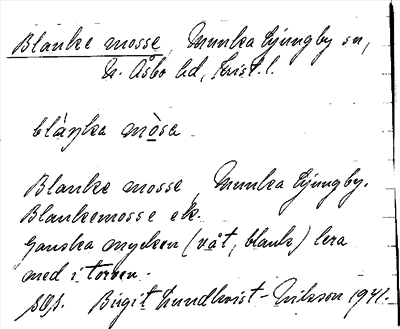 Blanke mosse, Munka Ljungby sn,
N. Åsbo hd, Krist. l.
blàŋka mòsa
Blanke mosse, Munka Ljungby.
Blankemosse ek.
Ganska mycken (våt, blank) lera
med i torven.
Birgit Lundkvist-Nilsson 1941.